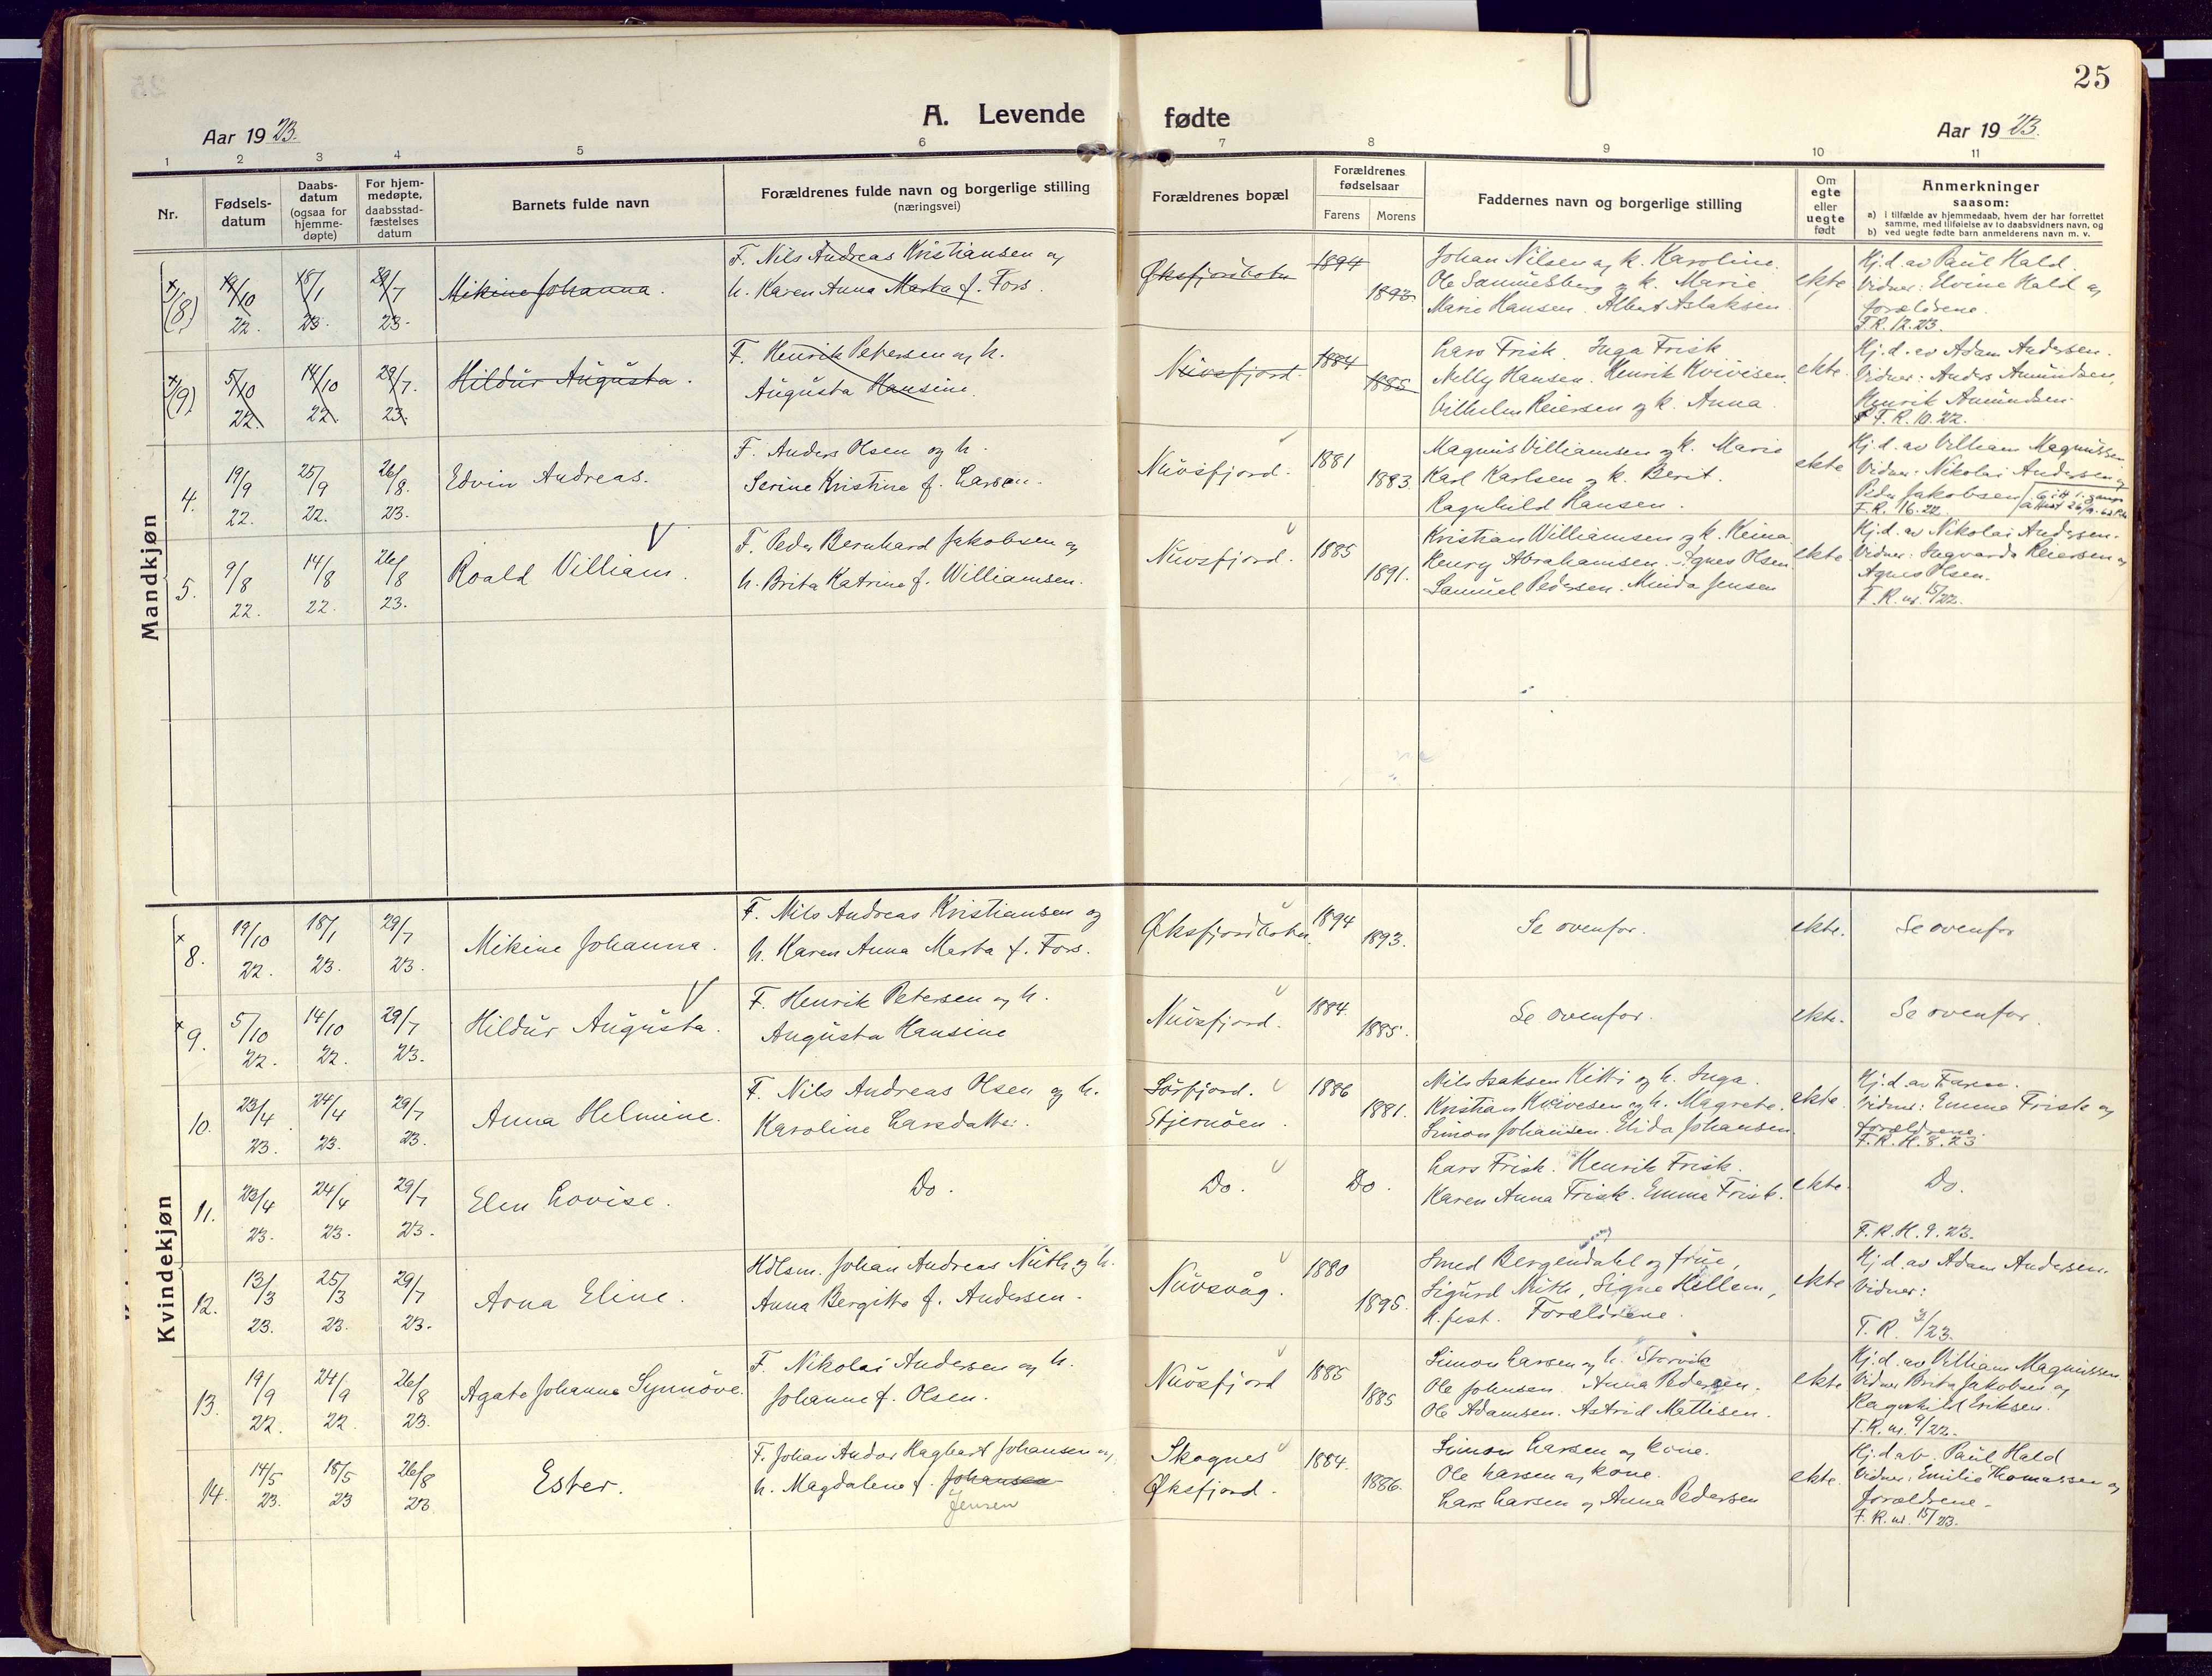 25
A. Levende fødte
Aar 1923.
Aar 1923.
1 2 3 4 5 6 7 8 9 10 11
Nr.
Fødsels-
datum
Daabs-
datum
(ogsaa for
hjemme-
døpte)
For hjem-
medøpte,
daabsstad-
fæstelses
datum
Barnets fulde navn
Forældrenes fulde navn og borgerlige stilling
(næringsvei)
Forældrenes bopæl
Forældrenes
fødselsaar
Farens
Morens
Faddernes navn og borgerlige stilling
Om
egte
eller
uegte
født
Anmerkninger
saasom:
a) i tilfælde av hjemmedaab, hvem der har forrettet
samme, med tilføielse av to daabsvidners navn, og
b) ved uegte fødte barn anmelderens navn m. v.
Mandkjøn
(8)
19/10 22.
18/1 23.
29/7 23.
Mikine Johanna.
F. Nils Andreas Kristiansen og
h. Karen Anna Marta f. Fors.
Øksfjordbotn
1894
1893
Johan Nilsen og k. Karoline.
Ole Samuelsberg og k. Marie
Marie Hansen. Albert Aslaksen
ekte
Hj.d. av Paul Hald.
Vidner: Elvine Hald og
forældrene.
F.R. 12.23.
(9)
5/10 22.
14/10 22.
29/7 23.
Hildur Augusta.
F. Henrik Petersen og h.
Augusta Hansine.
Nuvsfjord.
1884
1885
Lars Frisk. Inga Frisk
Nelly Hansen. Henrik Kvivesen.
Vilhelm Reiersen og k. Anna.
ekte.
Hj.d. av Adam Andersen.
Vidner: Anders Amundsen,
Henrik Amundsen.
F.R. 10.22.
4.
19/9 22.
25/9 22.
26/8. 23.
Edvin Andreas.
F. Anders Olsen og h.
Serine Kristine f. Larsen.
Nuvsfjord.
1881
1883.
Magnus Villiamsen og k. Marie
Karl Karlsen og k. Berit.
Ragnhild Hansen.
ekte
Hj.d. av Villiam Magnussen.
Vidner: Nikolai Andersen og
Peder Jakobsen
F.R. 16.22.
5.
9/8 22.
14/8 22.
26/8 23.
Roald Villiam.
F. Peder Bernhard Jakobsen og
h. Brita Katrine f. Williamsen.
Nuvsfjord.
1885
1891.
Kristian Williamsen og k. Keina
Henry Abrahamsen. Agnes Olsen.
Samuel Pedersen. Minda Jensen
ekte
Hj.d. av Nikolai Andersen.
Vidner: Ingvarda Reiersen og
Agnes Olsen.
F.R. nr. 15/22.
Kvindekjøn
8.
19/10 22.
18/1 23.
29/7 23.
Mikine Johanna.
F. Nils Andreas Kristiansen og
h. Karen Anna Marta f. Fors.
Øksfjordbotn
1894
1893.
Se ovenfor.
ekte.
Se ovenfor
9.
5/10 22.
14/10 22.
29/7 23.
Hildur Augusta.
F. Henrik Petersen og h.
Augusta Hansine
Nuvsfjord.
1884.
1885.
Se ovenfor.
ekte.
Se ovenfor.
10.
23/4 23.
24/4 23.
29/7 23.
Anna Helmine.
F. Nils Andreas Olsen og h.
Karoline Larsdatter.
Sørfjord.
Stjernøen.
1886
1881.
Nils Isaksen Kitti og h. Inga.
Kristian Kvivesen og h. Magrete.
Simon Johansen. Elida Johansen
ekte.
Hj.d. av Faren.
Vidner: Emma Frisk og
forældrene.
F.R. H. 8. 23
11.
23/4 23.
24/4 23.
29/7 23.
Elen Lovise.
Do.
Do.
Do.
Lars Frisk. Henrik Frisk.
Karen Anna Frisk. Emma Frisk.
ekte.
Do.
F.R.H. 9. 23.
12.
13/3 23.
25/3 23.
29/7 23.
Arna Eline.
Hdlsm. Johan Andreas Nuth og h.
Anna Bergitte f. Andersen.
Nuvsvåg.
1880
1895.
Smed Bergendahl og frue,
Sigurd Nuth, Signe Hellem,
Forældrene.
ekte
Hj.d. av Adam Andersen.
Vidner:
F.R. 3/23.
13.
19/9 22.
24/9 22.
26/8 23.
Agate Johanne Synnøve.
F. Nikolai Andersen og h.
Johanne f. Olsen.
Nuvsfjord
1885
1885
Simon Larsen og h. Storvik
Ole Johnsen. Anna Pedersen.
Ole Adamsen. Astrid Mattisen.
ekte
Hj.d. av Villiam Magnussen.
Vidner Brita Jakobsen og
Ragnhild Eriksen.
F.R. nr. 9/22.
14.
14/5 23.
18/5 23
26/8 23
Ester.
F. Johan Andor Hagbart Johansen og
h. Magdalene f. Johansen
Jensen
Skognes
Øksfjord.
1884.
1886.
Simon Larsen og kone.
Ole Larsen og kone.
Lars Larsen og Anna Pedersen
ekte.
Hj.d av. Paul Hald
Vidner: Emilie Thomassen og
forældrene.
F.R. nr. 15/23.